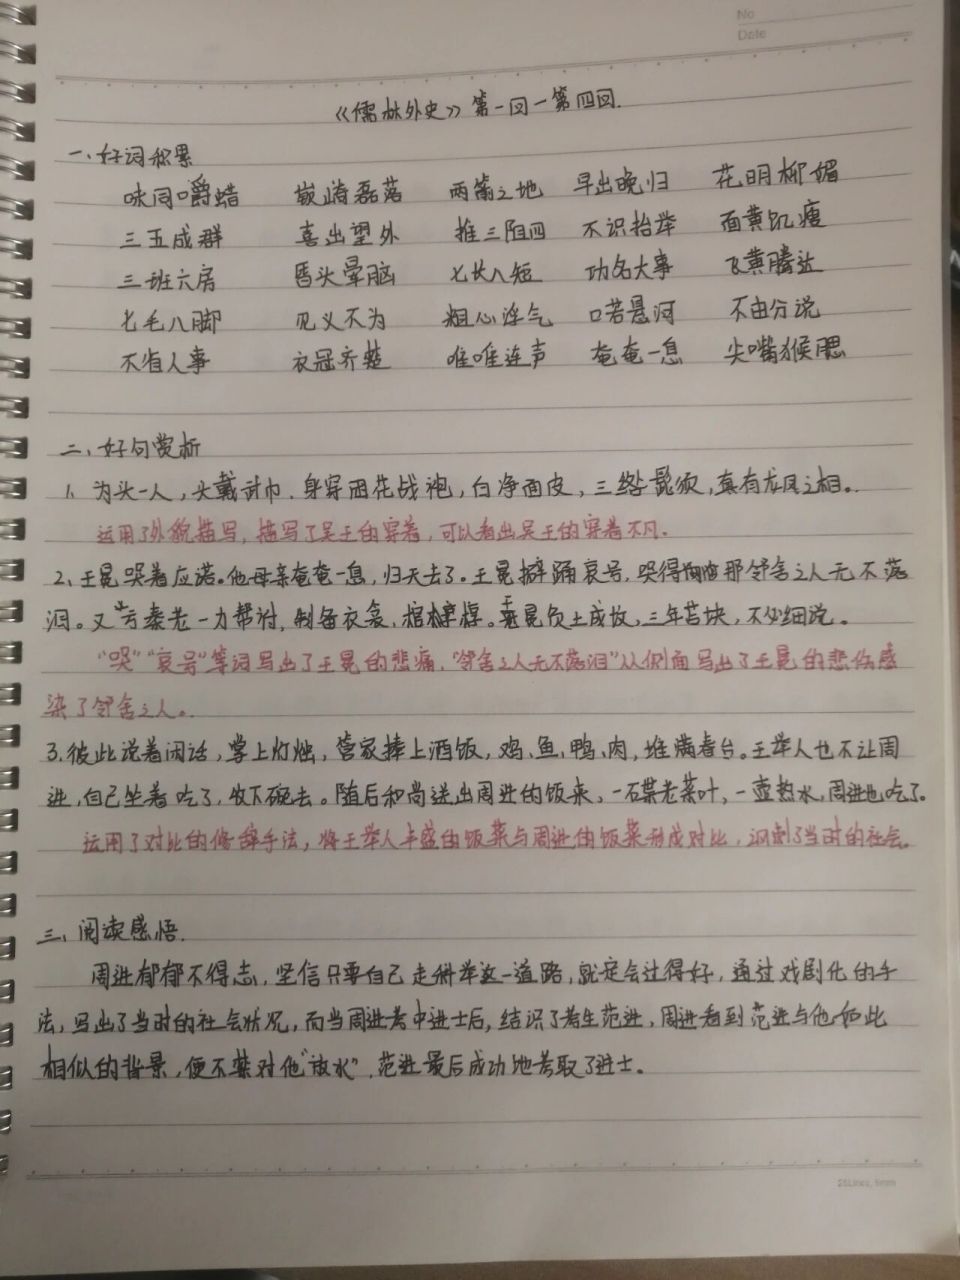 No
Date
《儒林外史》第一回—第四回.
一、好词积累
味同嚼蜡 嵚崎磊落 两榜之地 早出晚归 花明柳媚
三五成群 喜出望外 推三阻四 不识抬举 面黄肌瘦
三班六房 昏头晕脑 七长八短 功名大事 飞黄腾达
七毛八脚 见义不为 粗心浮气 口若悬河 不由分说
不省人事 衣冠齐楚 唯唯连声 奄奄一息 尖嘴猴腮
二、好句赏析
1、为头一人,头戴武巾、身穿团花战袍,白净面皮,三绺髭须,真有龙凤之相。
运用了外貌描写,描写了吴王的穿着,可以看出吴王的穿着不凡.
2、王冕哭着应诺。他母亲奄奄一息,归天去了。王冕擗踊哀号,哭得那邻舍之人无不落
泪。又亏秦老一力帮衬,制备衣衾、棺椁。王冕负土成坟,三年苫块,不必细说。
“哭”“哀号”等词写出了王冕的悲痛,“邻舍之人无不落泪”从侧面写出了王冕的悲伤感
染了邻舍之人。
3.彼此说着闲话,掌上灯烛,管家捧上酒饭,鸡、鱼、鸭、肉,堆满春台。王举人也不让周
进,自己坐着吃了,收下碗去。随后和尚送出周进的饭来,一碟老菜叶,一壶热水,周进也吃了。
运用了对比的修辞手法,将王举人丰盛的饭菜与周进的饭菜形成对比,讽刺了当时的社会。
三、阅读感悟.
周进郁郁不得志,坚信只要自己走科举这一道路,就定会过得好,通过戏剧化的手
法,写出了当时的社会状况,而当周进考中进士后,结识了考生范进,周进看到范进与他如此
相似的背景,便不禁对他“放水”,范进最后成功地考取了进士。
25Lines, 9mm